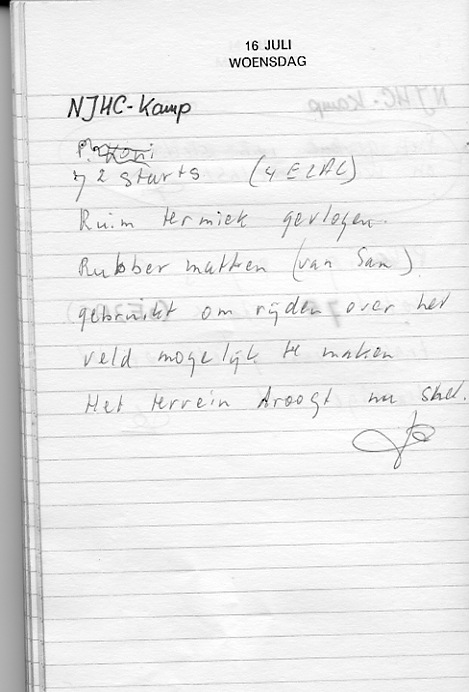 16 JULI
WOENSDAG
NJHC-Kamp
72 starts (4 EZAC)
Ruim termiek gevlogen.
Rubber matten (van San)
gebruikt om rijden over het
veld mogelijk te maken
Het terrein droogt nu snel.